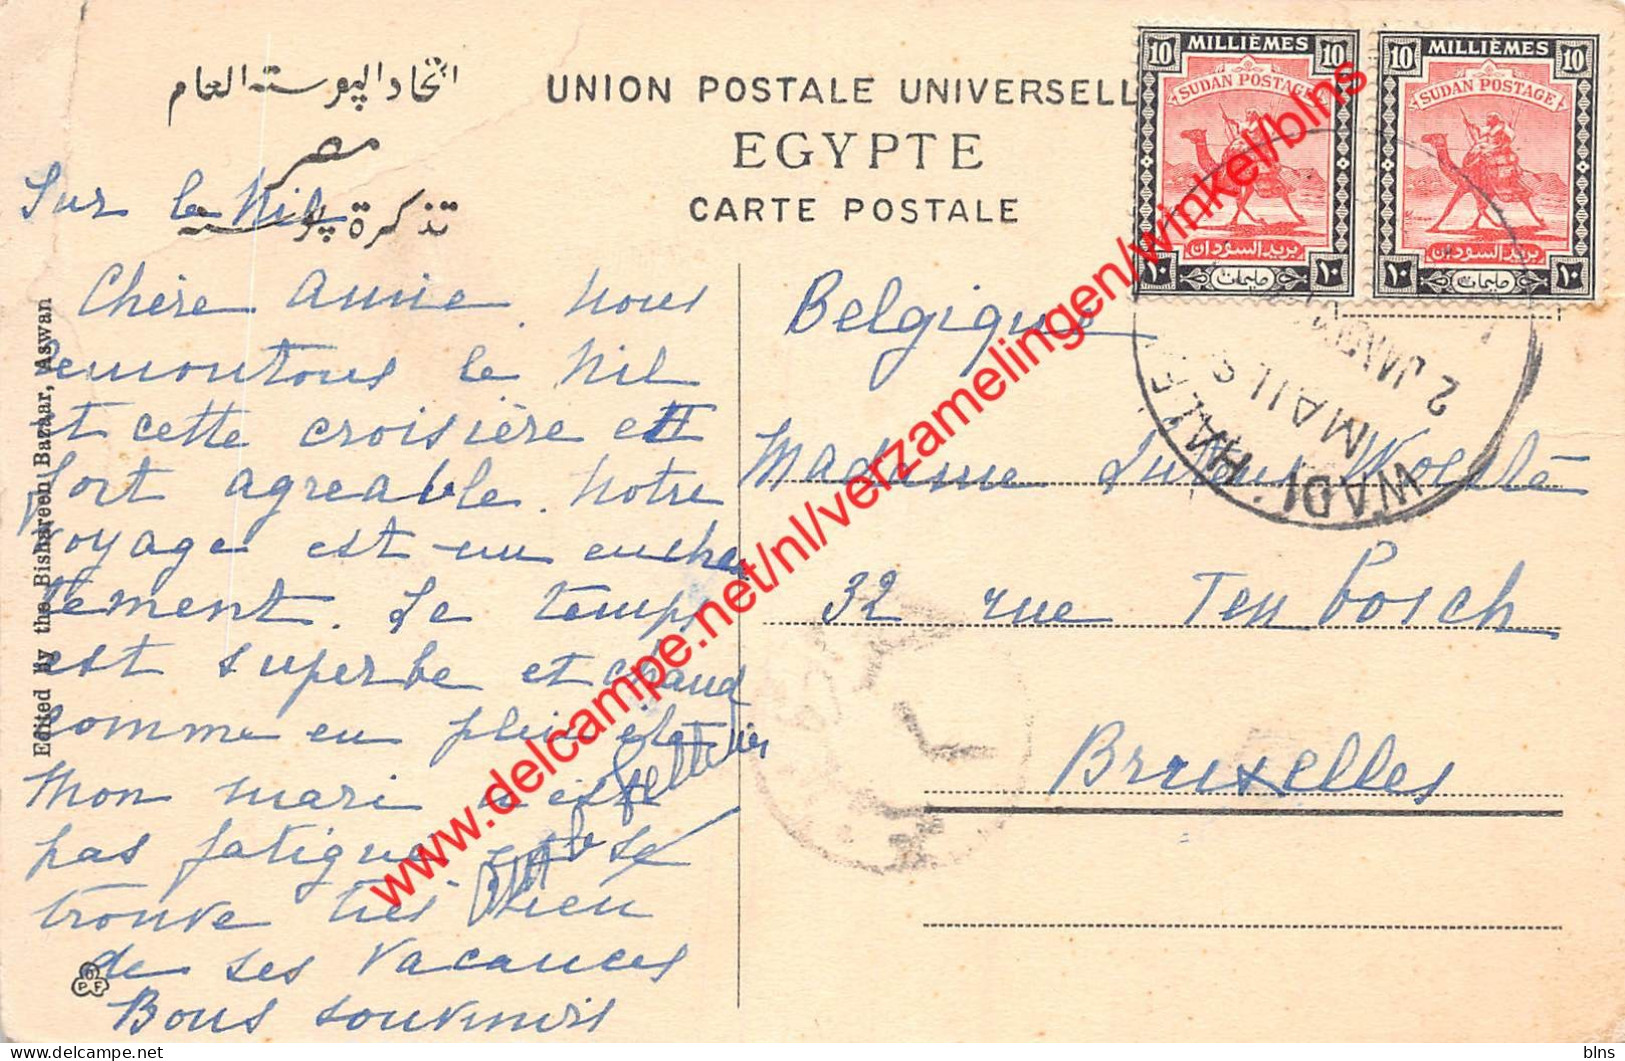 اتحاد البوسته العام
مصر
تذكرة بوسته
UNION POSTALE UNIVERSELL
EGYPTE
CARTE POSTALE
10 MILLIÈMES 10
SUDAN POSTAGE
بريد السودان
١٠ مليمات ١٠
10 MILLIÈMES 10
SUDAN POSTAGE
بريد السودان
١٠ مليمات ١٠
WADI HALFA
MAILS
2 JAN
Sur le Nil
Chère Annie, nous
remontons le Nil
et cette croisière est
fort agréable. Notre
voyage est un enchan
tement. Le temps
est superbe et chaud
comme en plein été
Mon mari n'est
pas fatigué et se
trouve très bien
de ses vacances
Bons souvenirs
Belgique
Madame
32 rue Ten Bosch
Bruxelles
Edited by the Bishareen Bazaar, Aswan
P F
www.delcampe.net/nl/verzamelingen/winkel/blns
blns